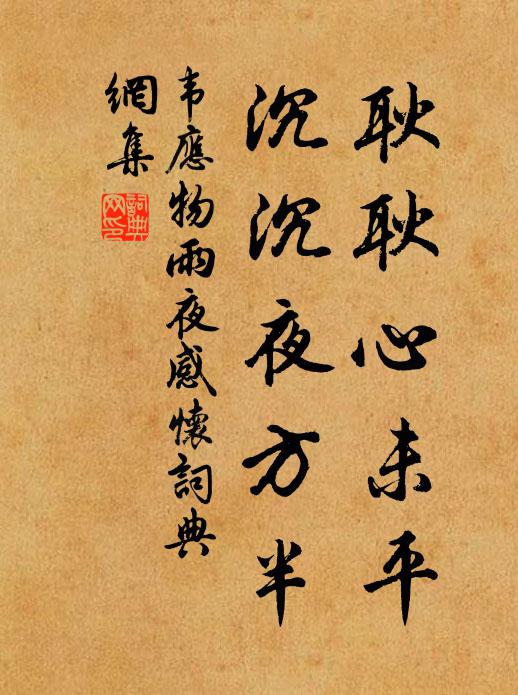 耿耿心未平
沉沉夜方半
韦應物雨夜感懷詞典
網集
詞典
网印